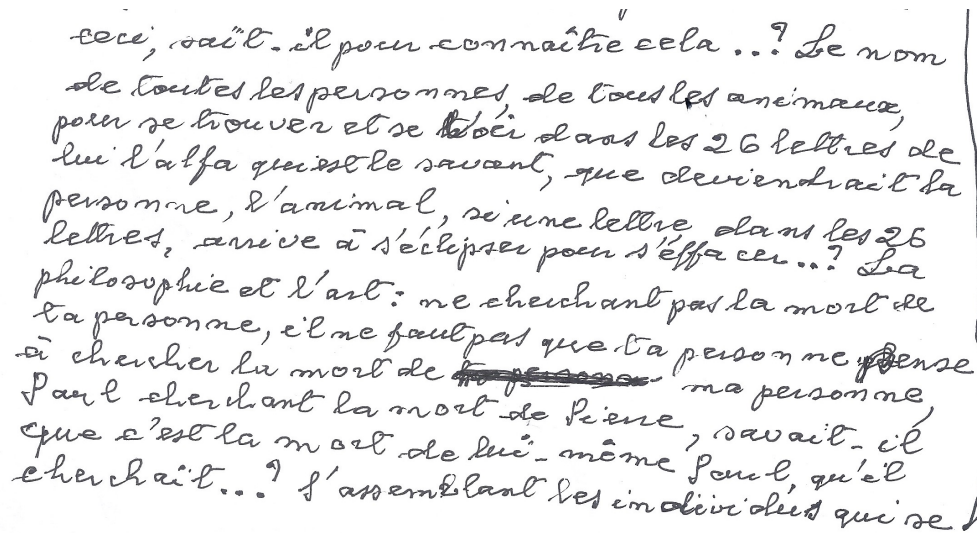 ceci, saït-il pour connaître cela...? Le nom
de toutes les personnes, de tous les animaux,
pour se trouver et se dans les 26 lettres de
lui l'alfa qui est le savant, que deviendrait la
personne, l'animal, si une lettre, dans les 26
lettres, arrive à s'éclipser pour s'éffacer...? La
philosophie et l'art: ne cherchant pas la mort de
ta personne, il ne faut pas que ta personne pense
à chercher la mort de ma personne,
Paul cherchant la mort de Pierre, savait-il
que c'est la mort de lui-même Paul, qu'il
cherchaït...? S'assemblant les individus qui se